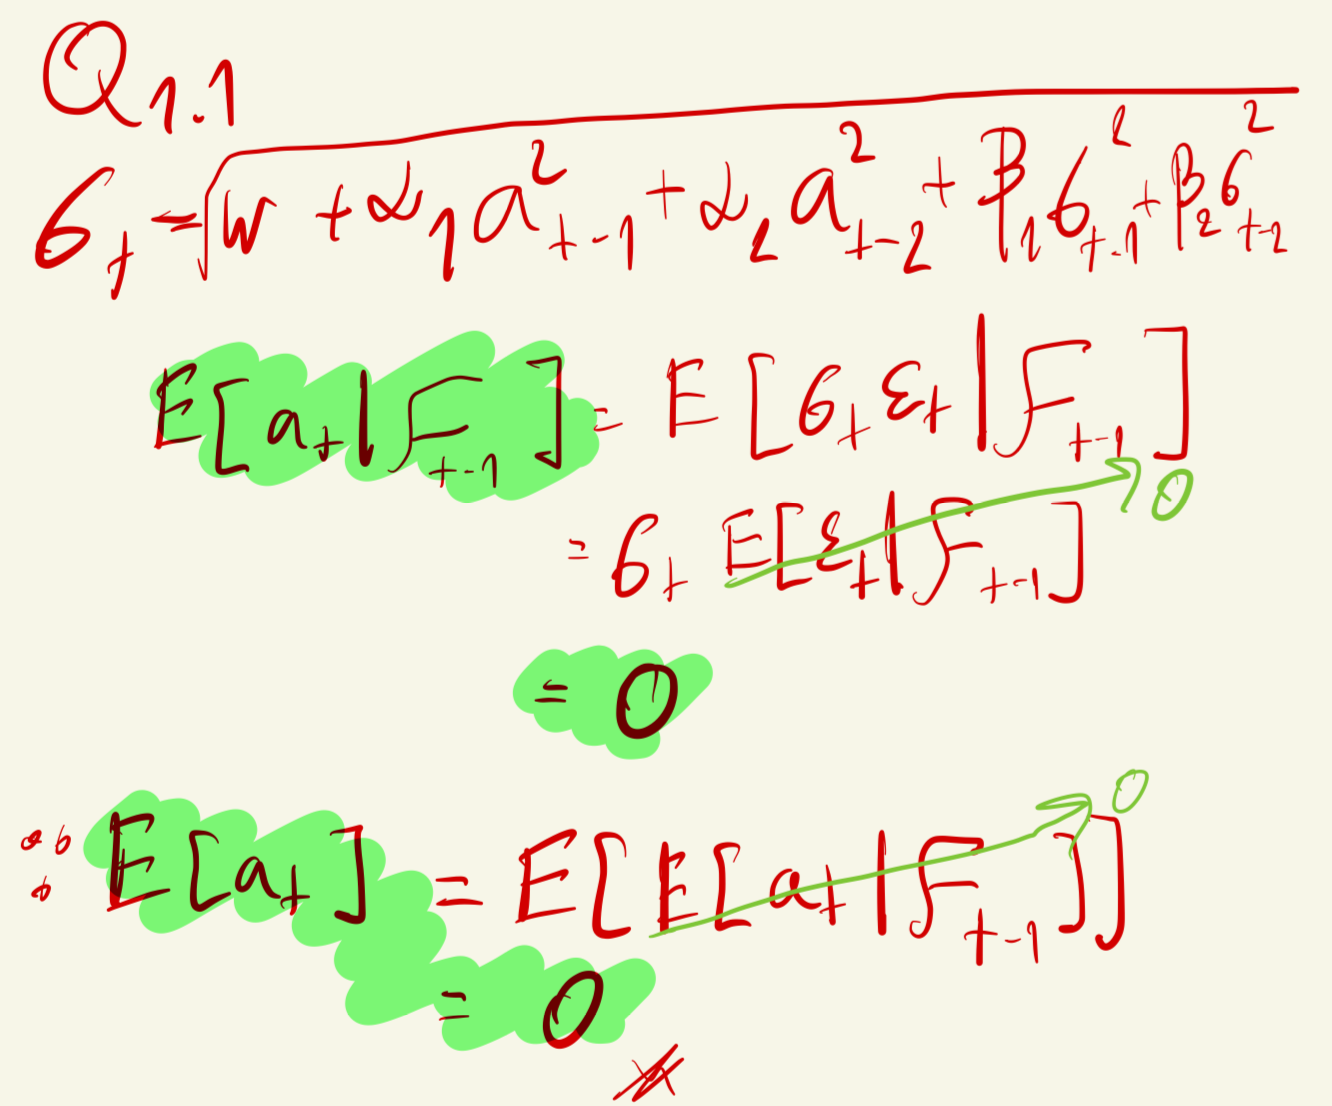 Q1.1
σ_t = √(w + α_1 a²_{t-1} + α_2 a²_{t-2} + β_1 σ²_{t-1} + β_2 σ²_{t-2})
E[a_t | F_{t-1}] = E[σ_t ε_t | F_{t-1}]
= σ_t E[ε_t | F_{t-1}] → 0
= 0
∴ E[a_t] = E[E[a_t | F_{t-1}]] → 0
= 0